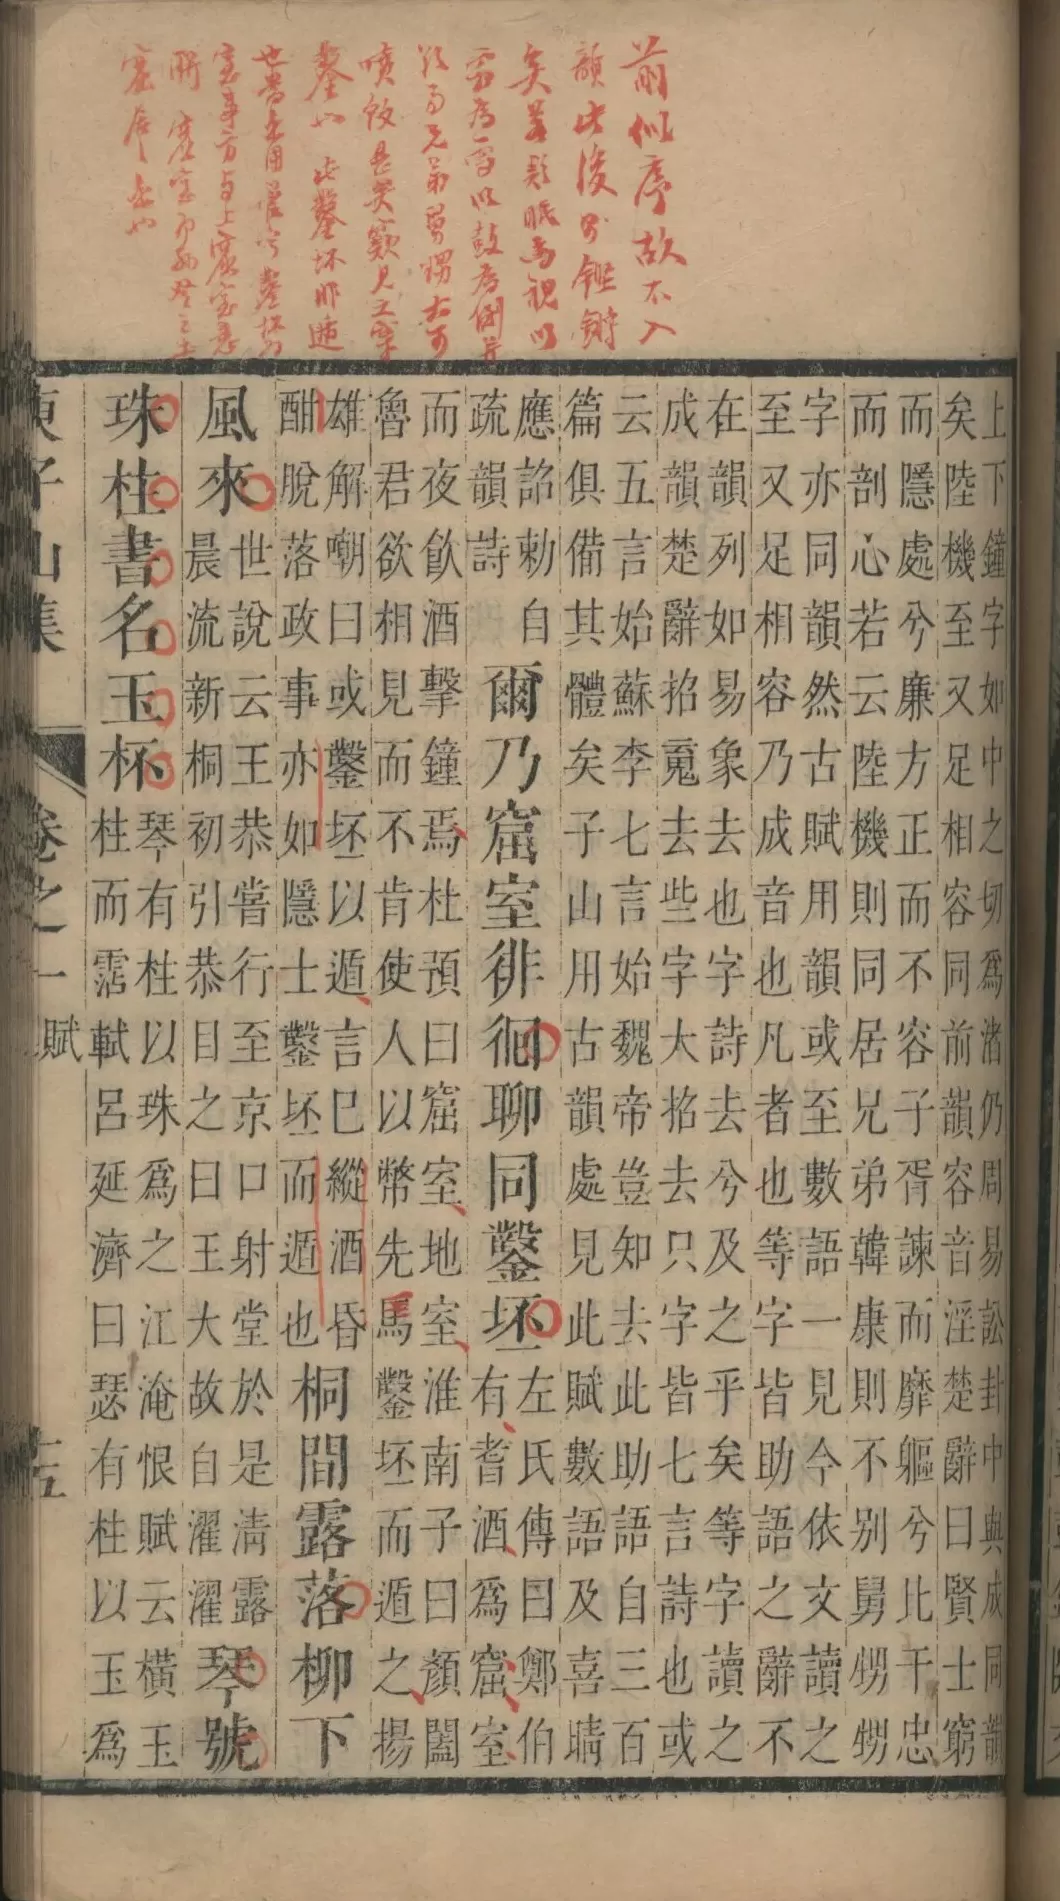 前似序故不入
韻此後乃鏗鏘
上下鐘字如中之切爲渚仍周易訟卦中與成同韻
矣陸機至又足相容同前韻容音淫楚辭曰賢士窮
而隱處兮廉方正而不容子胥諫而靡軀兮比干忠
而剖心若云陸機則同居兄弟韓康則不别舅甥甥
字亦同韻然古賦用韻或至數語一見今依文讀之
至又足相容乃成音也凡者也等字皆助語之辭不
在韻列如易象去也字詩去兮及之乎矣等字讀之
成韻楚辭招䰟去些字大招去只字皆七言詩也或
云五言始蘇李七言始魏帝豈知去此助語自三百
篇俱備其體矣子山用古韻處見此賦數語及喜晴
應詔勅自
疏韻詩
爾乃窟室徘徊聊同鑿坯
左氏傳曰鄭伯
有耆酒爲窟室
而夜飮酒擊鐘焉杜預曰窟室地室淮南子曰顏闔
魯君欲相見而不肯使人以幣先馬鑿坯而遁之揚
雄解嘲曰或鑿坯以遁言巳縱酒昏
酣脫落政事亦如隱士鑿坯而遁也
桐間露落柳下
風來
世說云王恭嘗行至京口射堂於是淸露
晨流新桐初引恭目之曰王大故自濯濯
琴號
珠柱書名玉杯
琴有柱以珠爲之江淹恨賦云橫玉
柱而霑軾呂延濟曰瑟有柱以玉爲
庾子山集
卷之一
賦
十五